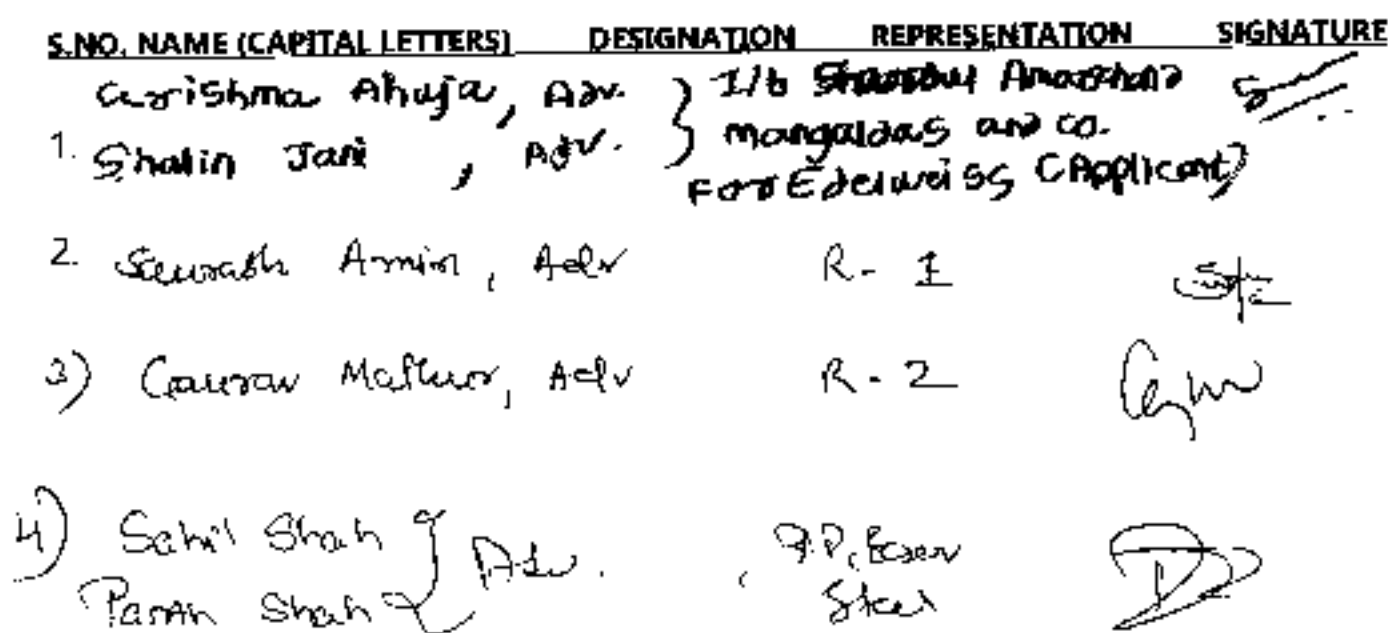 S.NO. NAME (CAPITAL LETTERS) DESIGNATION REPRESENTATION SIGNATURE
Grishma Ahuja, Adv. } I/b Shardul Amarchand
1. Shalin Jani , Adv. } mangaldas and co.
For Edelweiss (Applicant)
2. Saurabh Amin, Adv R - 1
3) Gaurav Mathur, Adv R - 2
4) Sahil Shah } Adv. R.P, Essar
Shah Steel